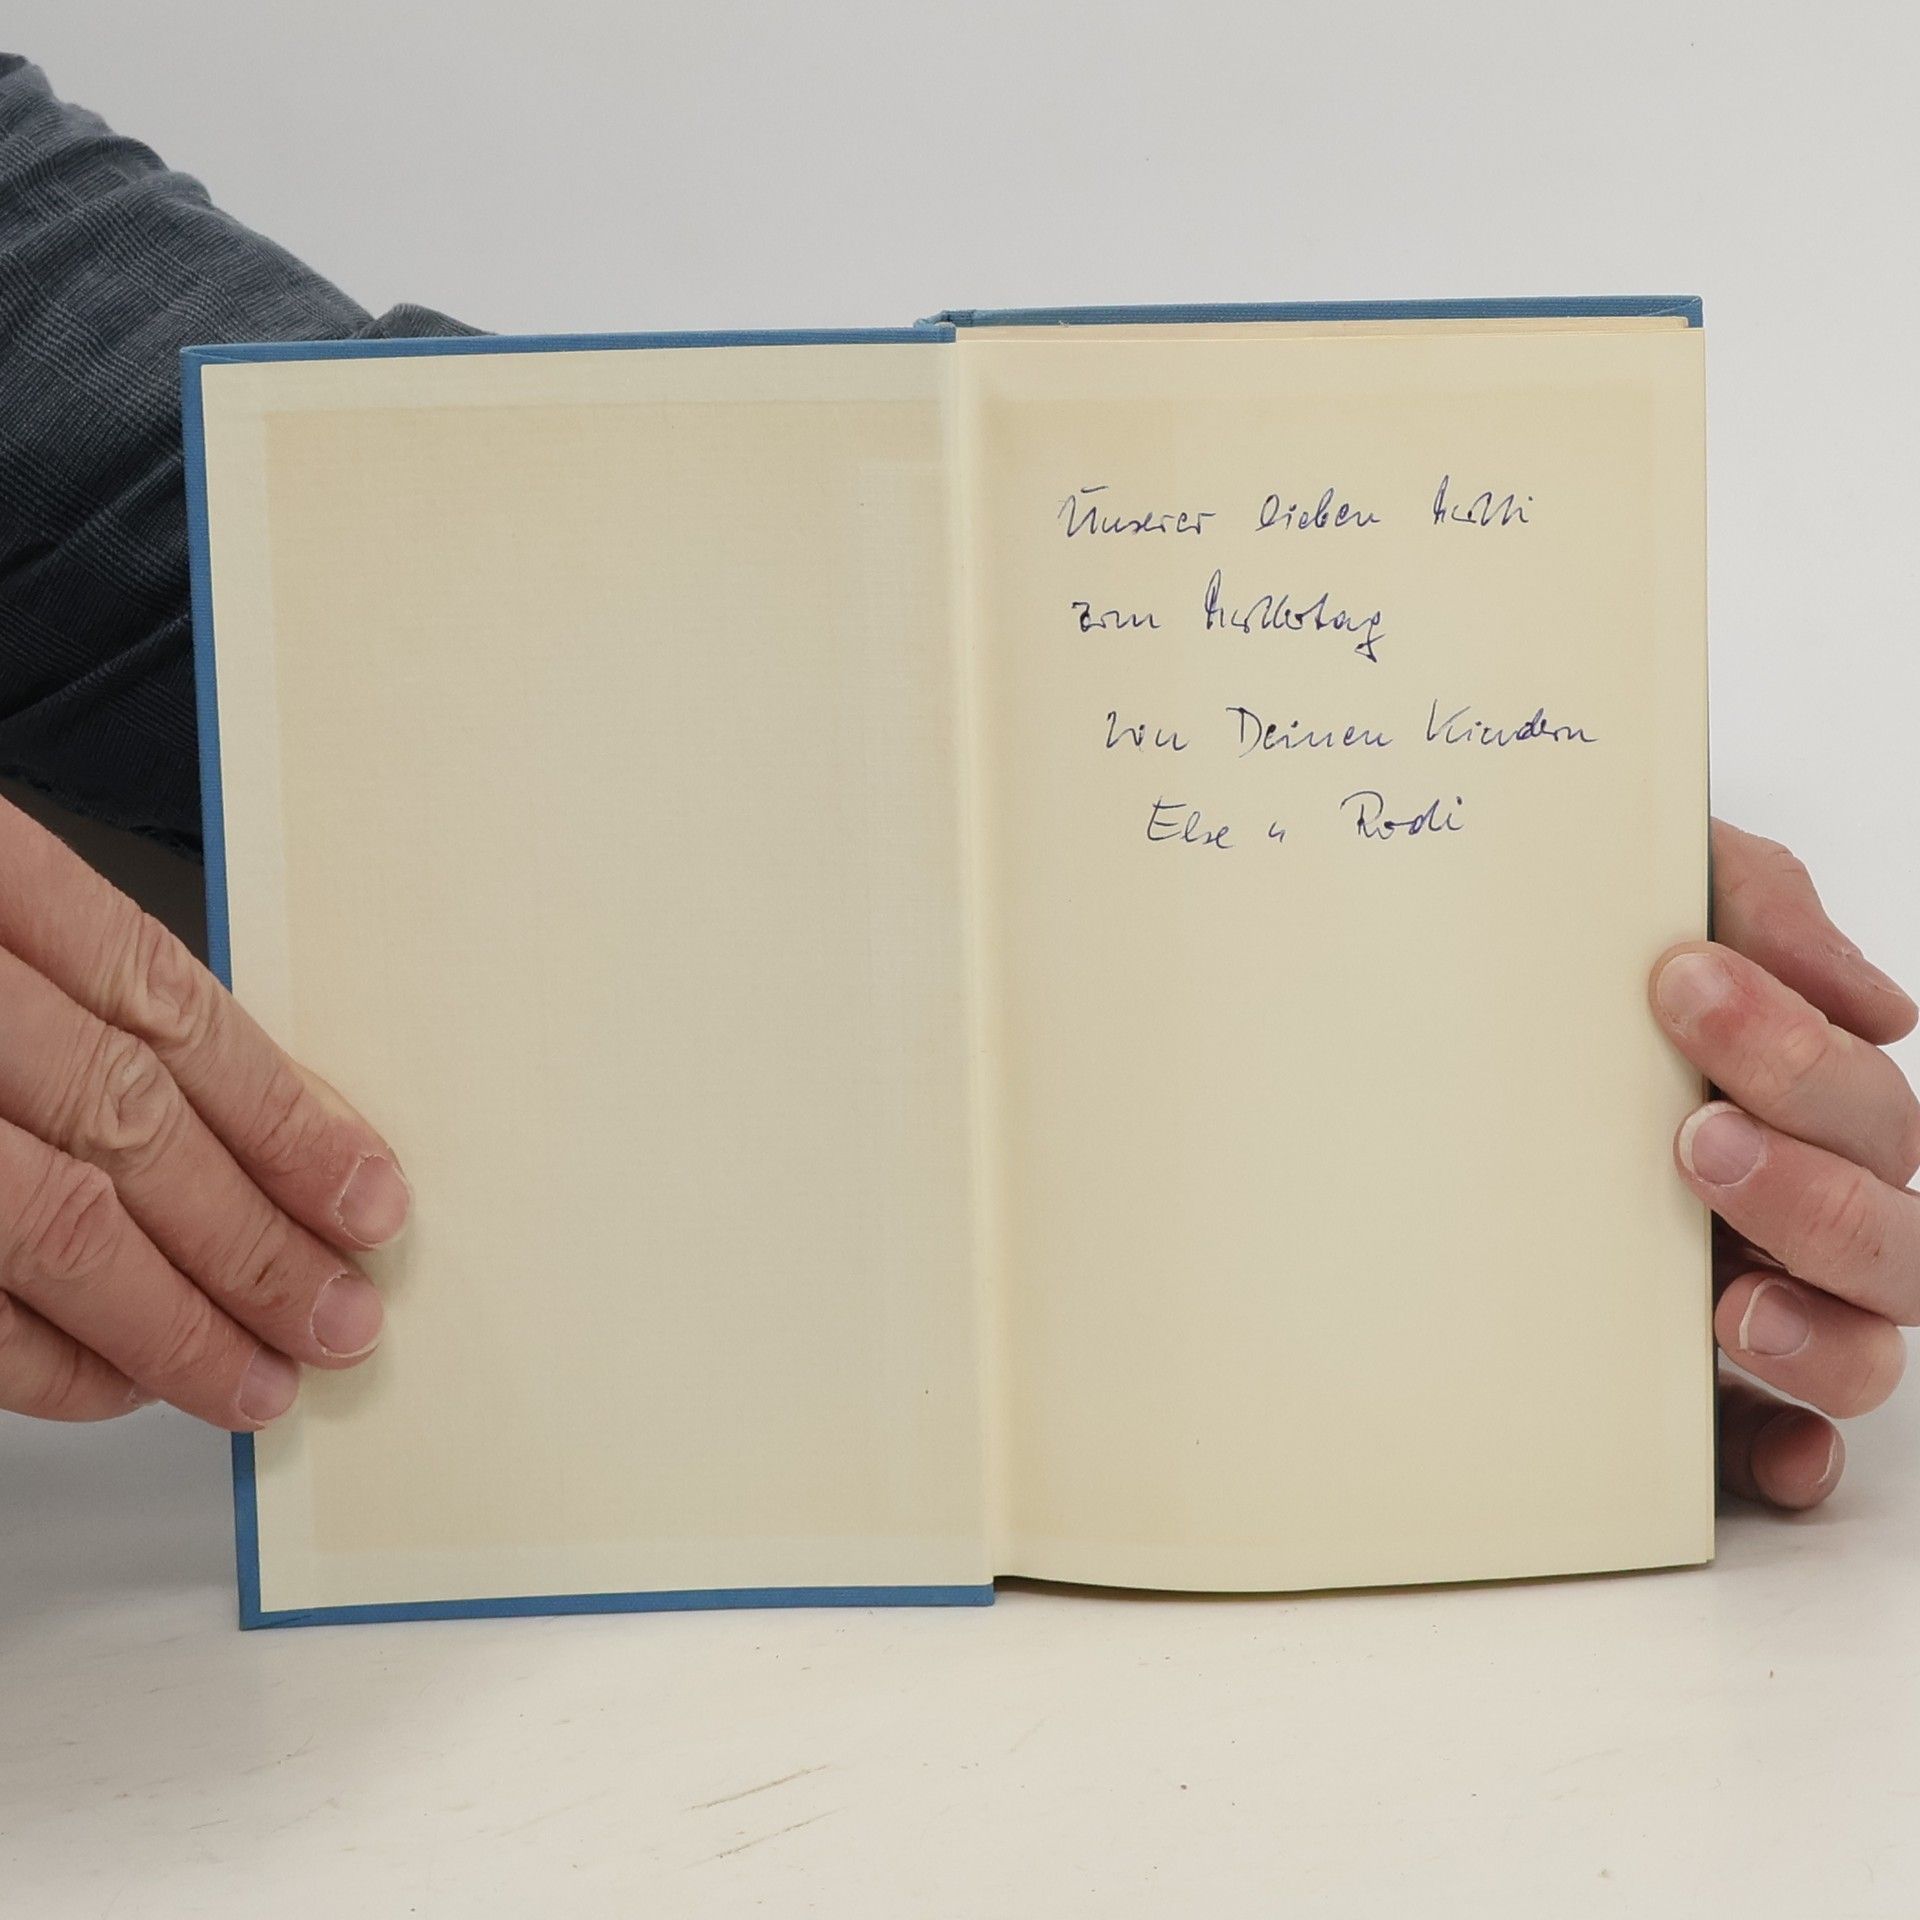 Unserer lieben Mutti
zum Muttertag
von Deinen Kindern
Else u Rodi